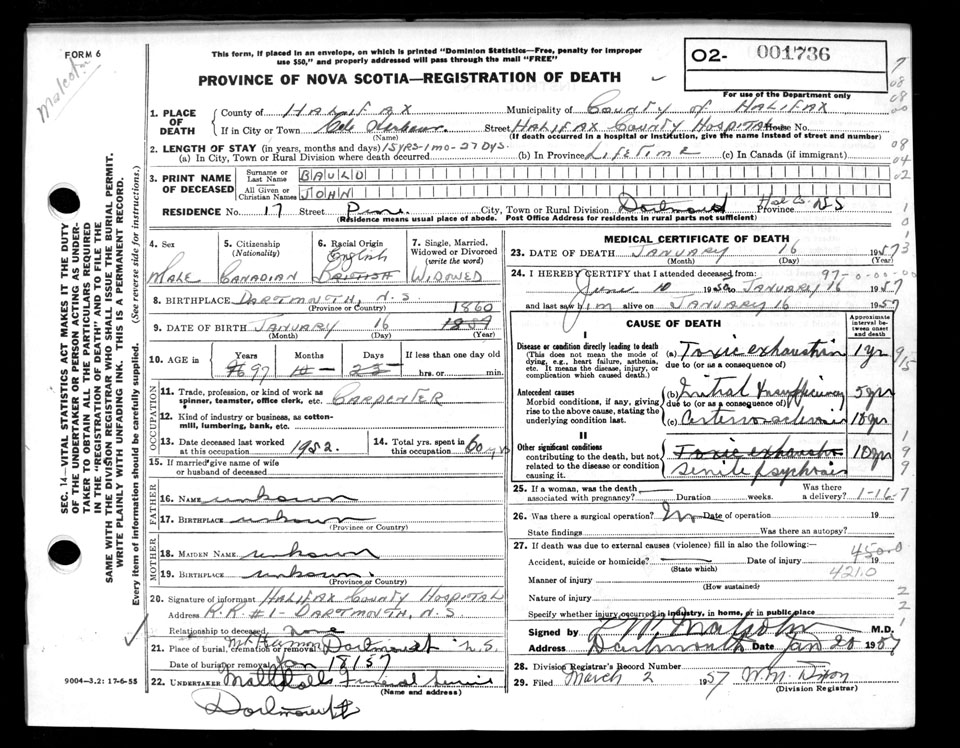 FORM 6
Malcolm
This form, if placed in an envelope, on which is printed "Dominion Statistics—Free, penalty for improper
use $50," and properly addressed will pass through the mail "FREE"
PROVINCE OF NOVA SCOTIA—REGISTRATION OF DEATH
02- 001736
For use of the Department only
1. PLACE OF DEATH
County of HALIFAX Municipality of COUNTY OF HALIFAX
If in City or Town Cole Harbour. Street HALIFAX COUNTY HOSPITAL House No.
(Name) (If death occurred in a hospital or institution, give the name instead of street and number)
2. LENGTH OF STAY (in years, months and days) 15YRS-1MO-27DYS.
(a) In City, Town or Rural Division where death occurred (b) In Province LIFETIME (c) In Canada (if immigrant)
3. PRINT NAME OF DECEASED
Surname or Last Name BAULD
All Given or Christian Names JOHN
RESIDENCE No. 17 Street Pine City, Town or Rural Division Dartmouth Hfx Co. Province NS
(Residence means usual place of abode. Post Office Address for residents in rural parts not sufficient)
4. Sex
MALE
5. Citizenship (Nationality)
CANADIAN
6. Racial Origin
English
BRITISH
7. Single, Married, Widowed or Divorced (write the word)
WIDOWED
8. BIRTHPLACE DARTMOUTH, N.S.
(Province or Country)
1860
9. DATE OF BIRTH JANUARY 16 1859
(Month) (Day) (Year)
10. AGE in Years Months Days If less than one day old
97 hrs. or min.
OCCUPATION
11. Trade, profession, or kind of work as spinner, teamster, office clerk, etc. CARPENTER
12. Kind of industry or business, as cotton-mill, lumbering, bank, etc.
13. Date deceased last worked at this occupation 1952.
14. Total yrs. spent in this occupation 60 yrs
15. If married give name of wife or husband of deceased
FATHER
16. NAME unknown
17. BIRTHPLACE unknown
(Province or Country)
MOTHER
18. MAIDEN NAME unknown
19. BIRTHPLACE unknown.
(Province or Country)
20. Signature of informant HALIFAX COUNTY HOSPITAL
Address R.R. #1 - DARTMOUTH, N.S
Relationship to deceased none
21. Place of burial, cremation or removal Mt Hermon Dartmouth N.S.
Date of burial or removal Jan 18/57
22. UNDERTAKER Funeral Service
(Name and address)
Dartmouth
MEDICAL CERTIFICATE OF DEATH
23. DATE OF DEATH JANUARY 16 1957
(Month) (Day)
24. I HEREBY CERTIFY that I attended deceased from: 97-0-00-00
June 10 1950 to JANUARY 16 1957
and last saw him alive on JANUARY 16 1957
CAUSE OF DEATH
Approximate interval between onset and death
I
Disease or condition directly leading to death
(This does not mean the mode of dying, e.g., heart failure, asthenia, etc. It means the disease, injury, or complication which caused death.)
(a) Toxic exhaustion 1 yr
due to (or as a consequence of)
Antecedent causes
Morbid conditions, if any, giving rise to the above cause, stating the underlying condition last.
(b) Mitral Insufficiency 5 yr
due to (or as a consequence of)
(c) Arteriosclerosis 10 yr
II
Other significant conditions
contributing to the death, but not related to the disease or condition causing it.
Toxic exhaustion
Senile Psychosis 10 yr
25. If a woman, was the death associated with pregnancy? Duration weeks. Was there a delivery? 1-16-7
26. Was there a surgical operation? No Date of operation 19
State findings Was there an autopsy?
27. If death was due to external causes (violence) fill in also the following:—
4500
Accident, suicide or homicide? Date of injury 19
(State which) 4210
Manner of injury
(How sustained)
Nature of injury
Specify whether injury occurred in industry, in home, or in public place
Signed by Malcolm M.D.
Address Dartmouth Date Jan 20 1957
28. Division Registrar's Record Number
29. Filed March 2 1957 W.M. Dixon
(Division Registrar)
SEC. 14—VITAL STATISTICS ACT MAKES IT THE DUTY
OF THE UNDERTAKER OR PERSON ACTING AS UNDERTAKER TO OBTAIN ALL THE PARTICULARS REQUIRED
IN THE "REGISTRATION OF DEATH" AND TO FILE THE
SAME WITH THE DIVISION REGISTRAR WHO SHALL ISSUE THE BURIAL PERMIT.
WRITE PLAINLY WITH UNFADING INK. THIS IS A PERMANENT RECORD.
Every item of information should be carefully supplied. (See reverse side for instructions.)
9004—3.2: 17-6-55